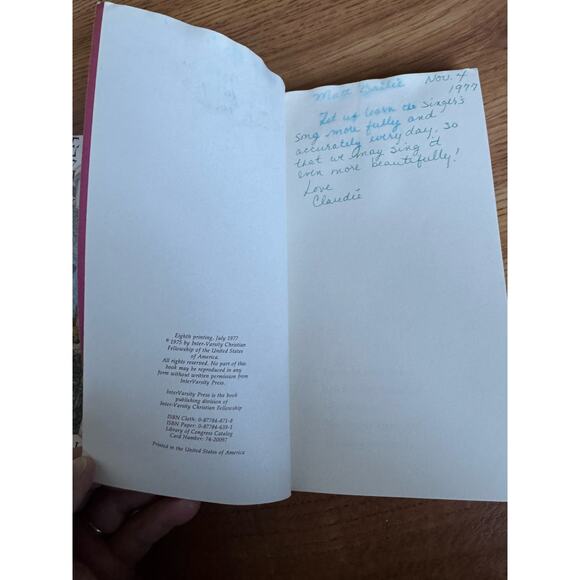 Eighth printing, July 1977
© 1975 by Inter-Varsity Christian
Fellowship of the United States
of America.
All rights reserved. No part of this
book may be reproduced in any
form without written permission from
InterVarsity Press.
InterVarsity Press is the book
publishing division of
Inter-Varsity Christian Fellowship
ISBN Cloth: 0-87784-871-8
ISBN Paper: 0-87784-639-1
Library of Congress Catalog
Card Number: 74-20097
Printed in the United States of America
Nov. 4
1977
Matt
Let us learn the singer's
song more fully and
accurately every day, so
that we may sing it
even more beautifully!
Love
Claudie